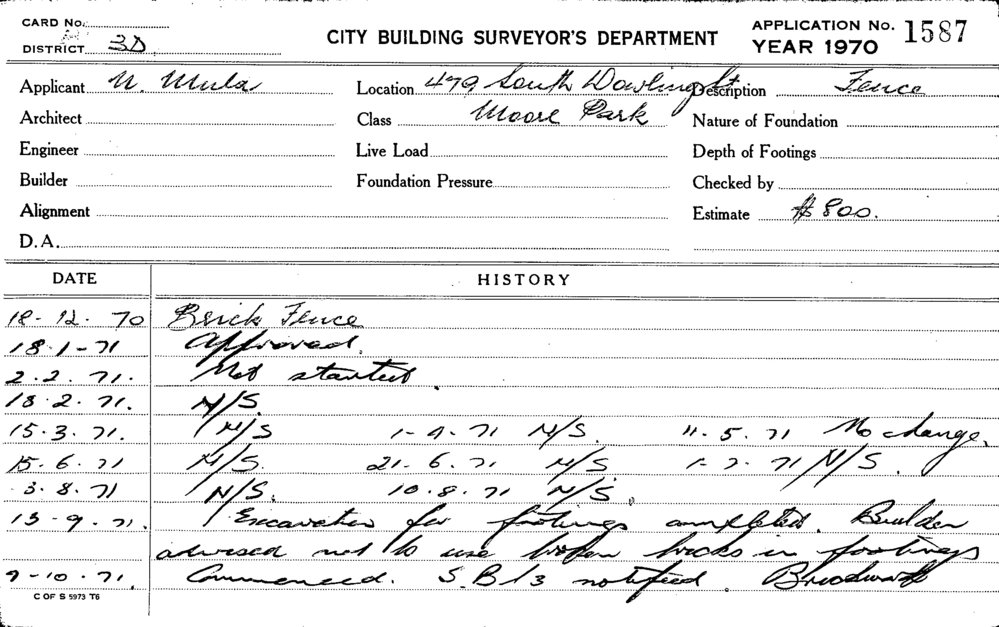 CARD No.
DISTRICT 3D
CITY BUILDING SURVEYOR'S DEPARTMENT
APPLICATION No. 1587
YEAR 1970
Applicant N. Mula
Location 479 South Dowling St
Description Fence
Architect
Class Moore Park
Nature of Foundation
Engineer
Live Load
Depth of Footings
Builder
Foundation Pressure
Checked by
Alignment
Estimate $800.
D.A.
DATE HISTORY
18-12-70 Brick Fence
18-1-71 Approved.
2.2.71. Not started.
18.2.71. N/S.
15.3.71. N/S 1-4-71 N/S. 11.5.71 No change.
15.6.71 N/S. 21.6.71 N/S. 1-7-71 N/S.
3.8.71 N/S. 10.8.71 N/S.
13-9.71. Excavation for footings completed. Builder
advised not to use broken bricks in footings
7-10.71. Commenced. S.B.I3 notified. Brickwork
C OF S 5973 T6